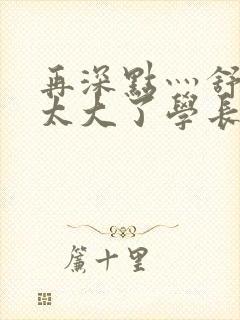 再深點灬舒
太大了學長
簾十里